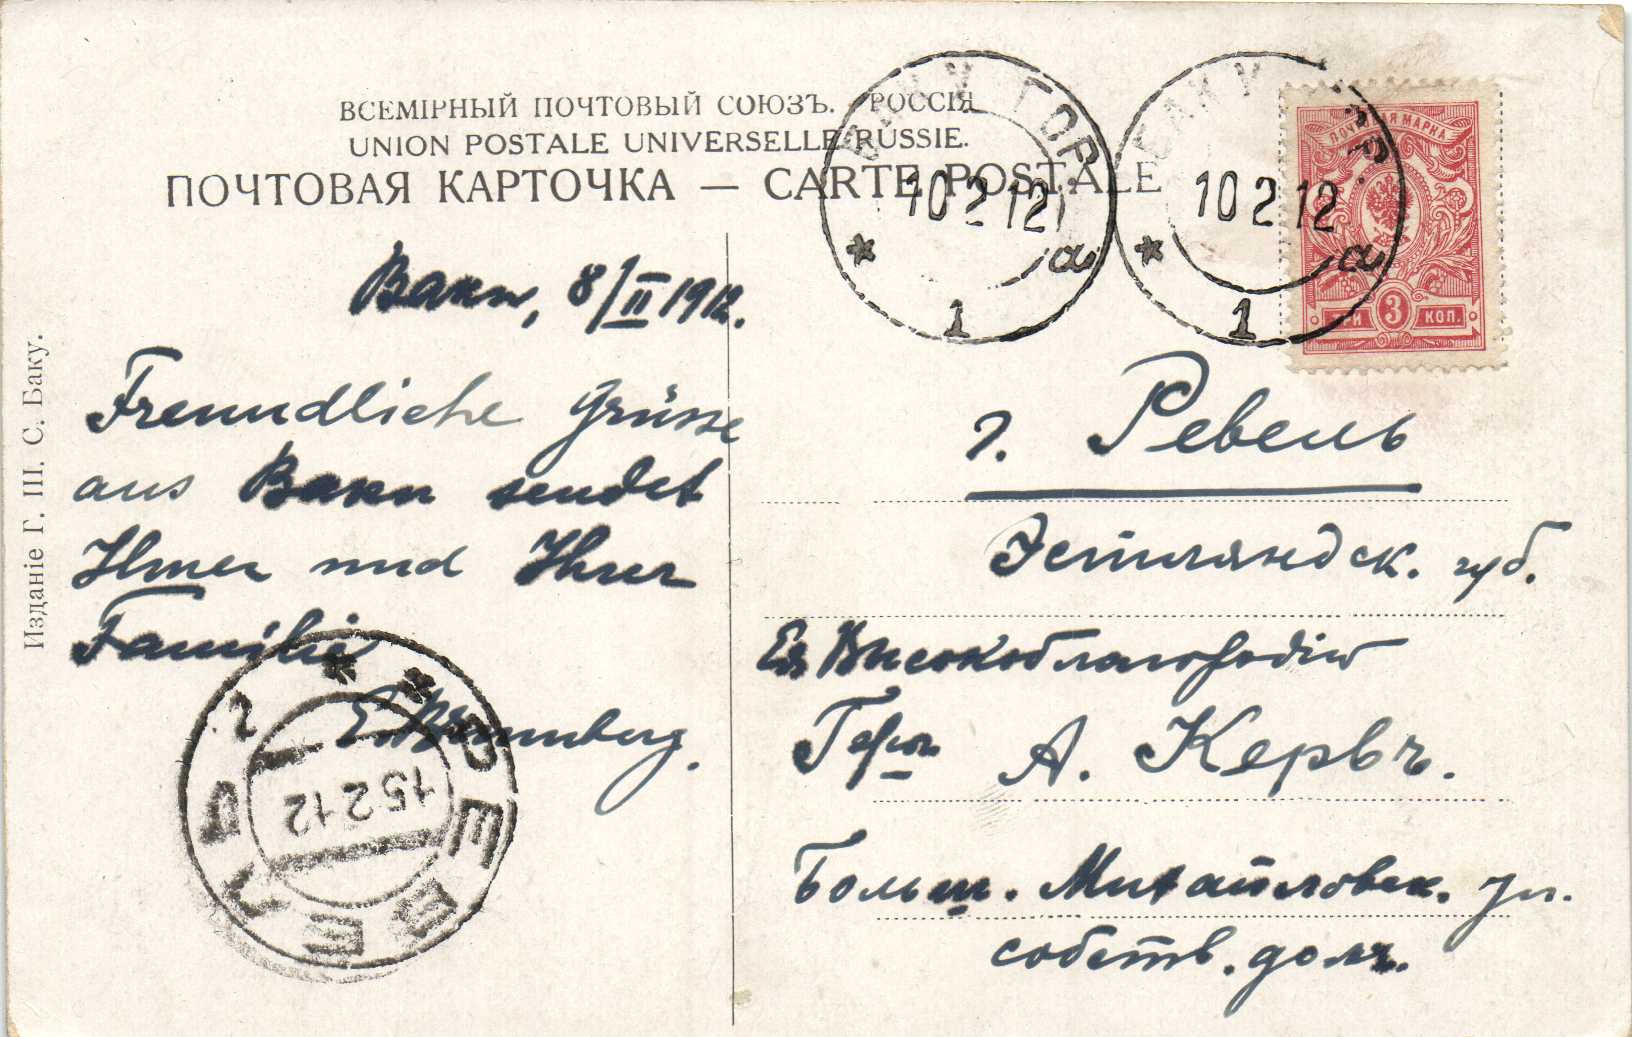 ВСЕМІРНЫЙ ПОЧТОВЫЙ СОЮЗЪ. РОССІЯ
UNION POSTALE UNIVERSELLE RUSSIE.
ПОЧТОВАЯ КАРТОЧКА — CARTE POSTALE
БАКУ ГОР.
10 2 12
а
1
БАКУ ГОР.
10 2 12
а
1
ПОЧТОВАЯ МАРКА
ТРИ 3 КОП.
Изданіе Г. Ш. С. Баку.
Baku, 8/II 1912.
Freundliche Grüsse
aus Baku sendet
Ihnen und Ihrer
Familie
г. Ревель
Эстляндск. губ.
Его Высокоблагородію
Герм А. Кервъ.
Больш. Михайловск. ул.
собств. домъ.
РЕВЕЛЬ
15 2 12